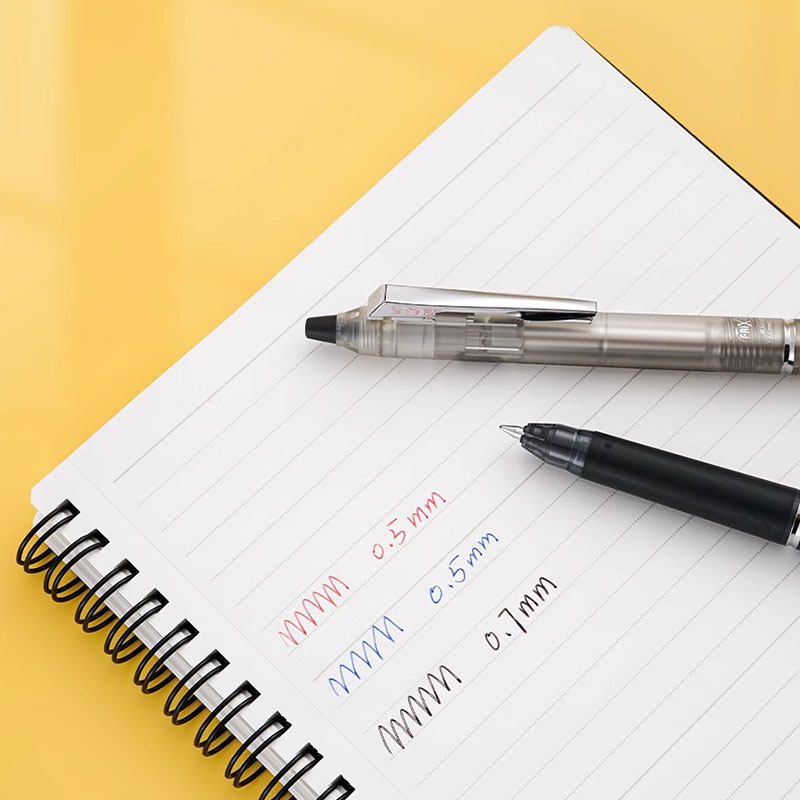 0.5mm
0.5mm
0.7mm